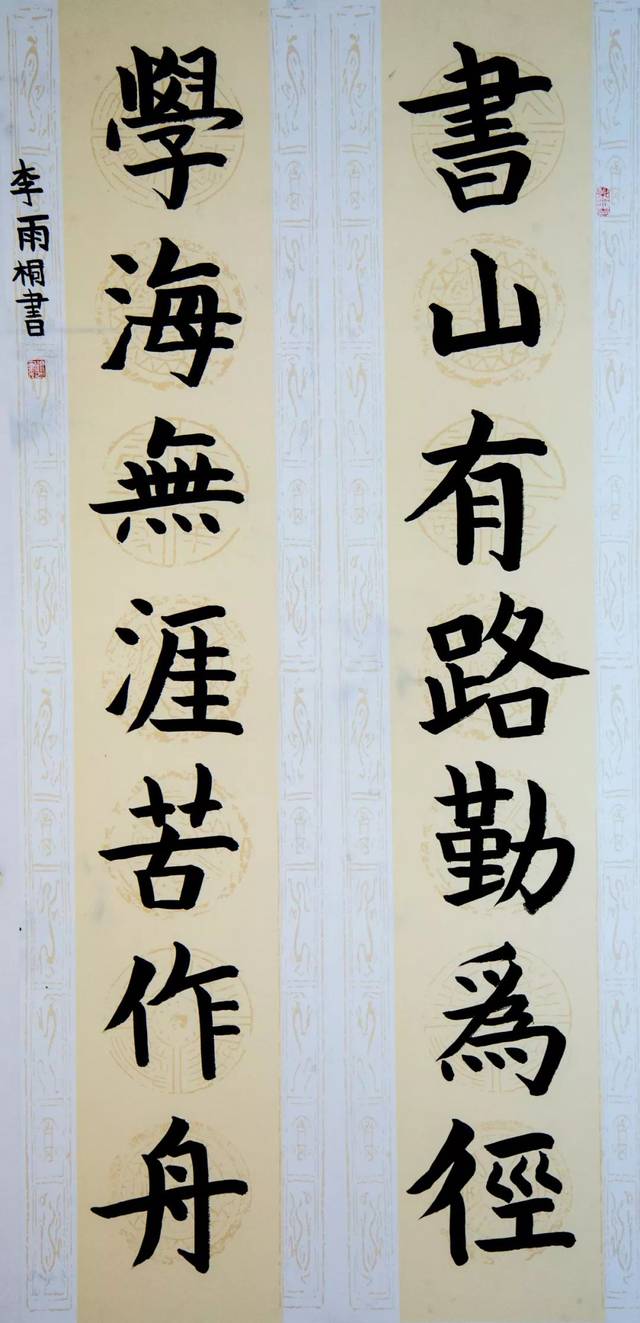 書山有路勤爲徑
學海無涯苦作舟
李雨桐書